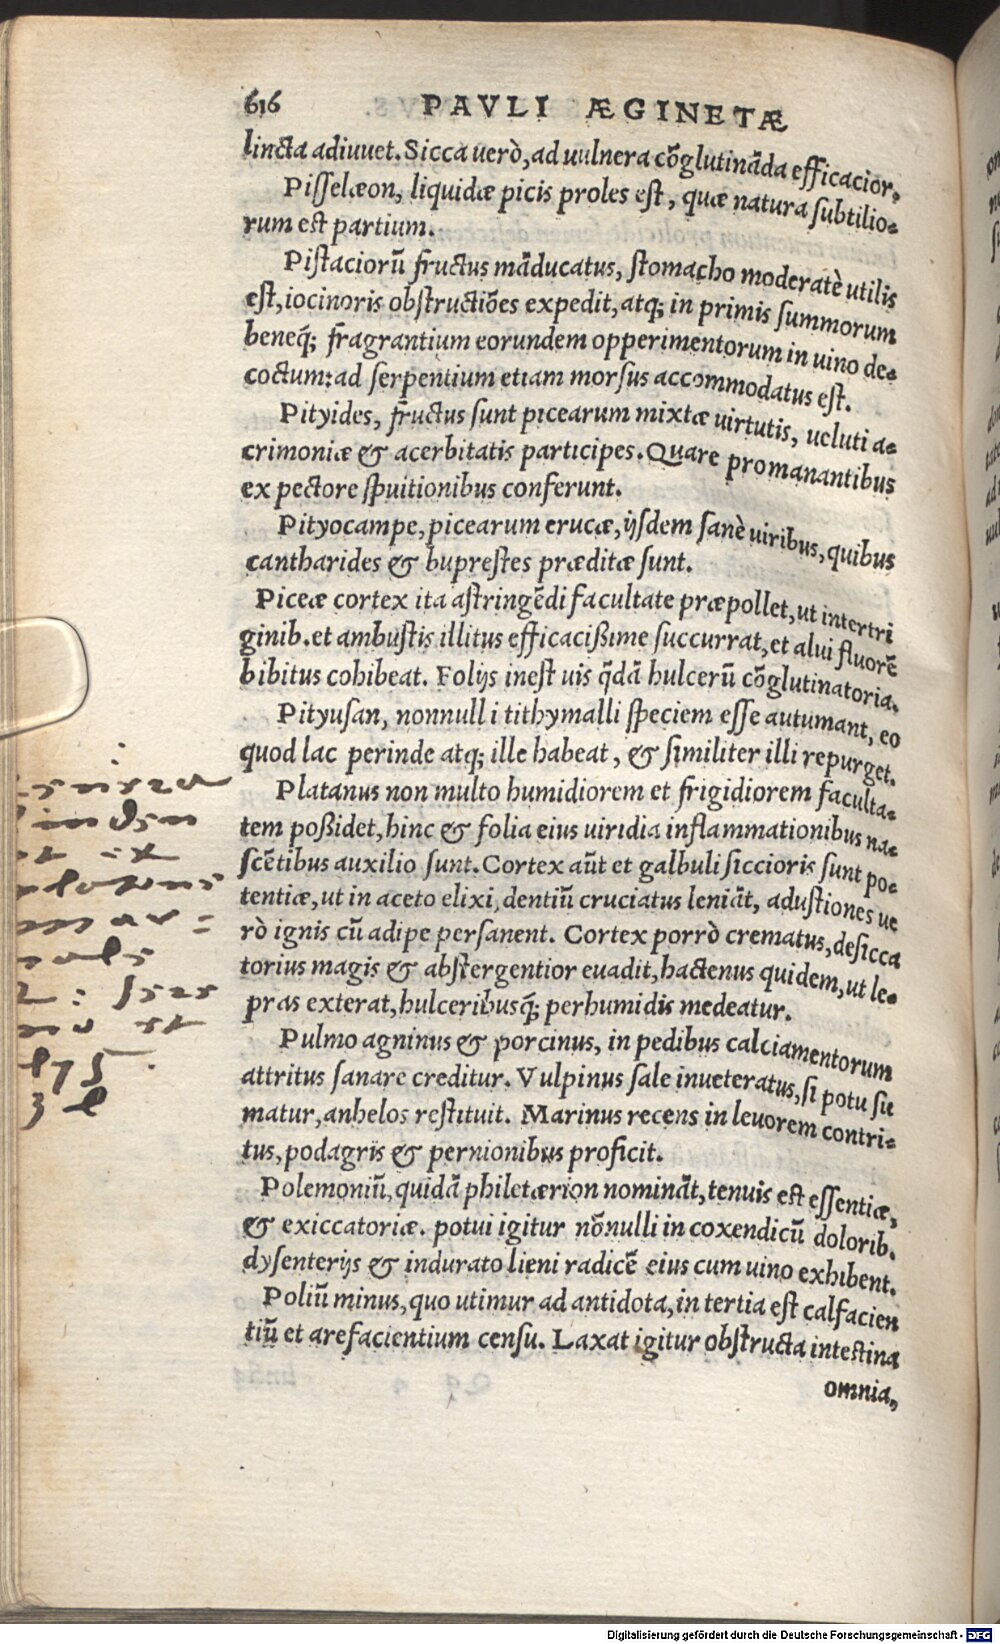 616 PAVLI ÆGINETÆ
lincta adiuuet. Sicca uerò, ad uulnera cõglutinãda efficacior.
Pisselæon, liquidæ picis proles est, quæ natura subtilio=
rum est partium.
Pistaciorũ fructus mãducatus, stomacho moderatè utilis
est, iocinoris obstructiões expedit, atq; in primis summorum
beneq́; fragrantium eorundem opperimentorum in uino de=
coctum: ad serpentium etiam morsus accommodatus est.
Pityides, fructus sunt picearum mixtæ uirtutis, ueluti a=
crimoniæ & acerbitatis participes. Quare promanantibus
ex pectore sputionibus conferunt.
Pityocampe, picearum erucæ, ijsdem sanè uiribus, quibus
cantharides & buprestes præditæ sunt.
Piceæ cortex ita astringẽdi facultate præpollet, ut intertri
ginib. et ambustis illitus efficacißime succurrat, et alui fluorẽ
bibitus cohibeat. Folijs inest uis q̃dã hulcerũ cõglutinatoria.
Pityusan, nonnulli tithymalli speciem esse autumant, eo
quod lac perinde atq; ille habeat, & similiter illi repurget.
Platanus non multo humidiorem et frigidiorem faculta=
tem poßidet, hinc & folia eius uiridia inflammationibus na=
scẽtibus auxilio sunt. Cortex aũt et galbuli siccioris sunt po=
tentiæ, ut in aceto elixi, dentiũ cruciatus leniãt, adustiones ue
rò ignis cũ adipe persanent. Cortex porrò crematus, desicca
torius magis & abstergentior euadit, hactenus quidem, ut le=
pras exterat, hulceribusq́; perhumidis medeatur.
Pulmo agninus & porcinus, in pedibus calciamentorum
attritus sanare creditur. Vulpinus sale inueteratus, si potu su
matur, anhelos restituit. Marinus recens in leuorem contri=
tus, podagris & pernionibus proficit.
Polemoniũ, quidã philetærion nominãt, tenuis est essentiæ,
& exiccatoriæ. potui igitur nõnulli in coxendicũ dolorib.
dysenterijs & indurato lieni radicẽ eius cum uino exhibent.
Poliũ minus, quo utimur ad antidota, in tertia est calfacien
tiũ et arefacientium censu. Laxat igitur obstructa intestina
omnia,
Digitalisierung gefördert durch die Deutsche Forschungsgemeinschaft - DFG